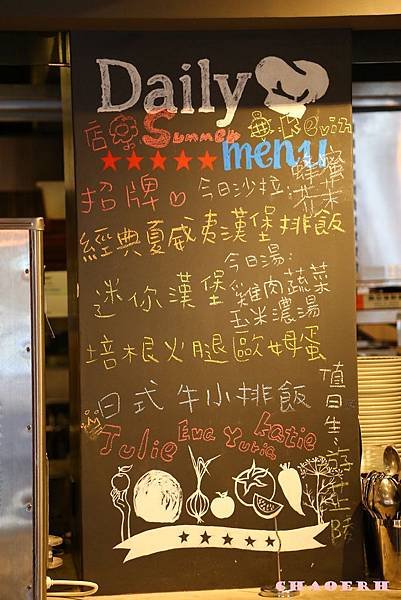 Daily
店 Summer Kevin
menu
招牌 今日沙拉: 蜂蜜芥末
經典夏威夷漢堡排飯
今日湯:
迷你漢堡 雞肉蔬菜
玉米濃湯
培根火腿歐姆蛋
日式牛小排飯
值日生:
Julie Eva Yuria Katie
CHAOERH